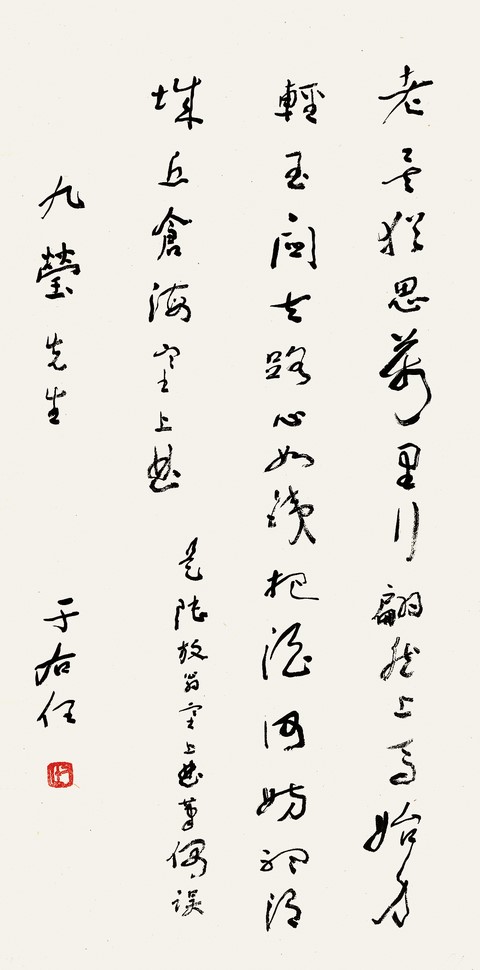 老矣猶思萬里行翩然上馬始身
輕玉關去路心如鐵把酒何妨聽渭
城丘倉海塞上曲
是陸放翁塞上曲筆偶誤
九瑩先生
于右任